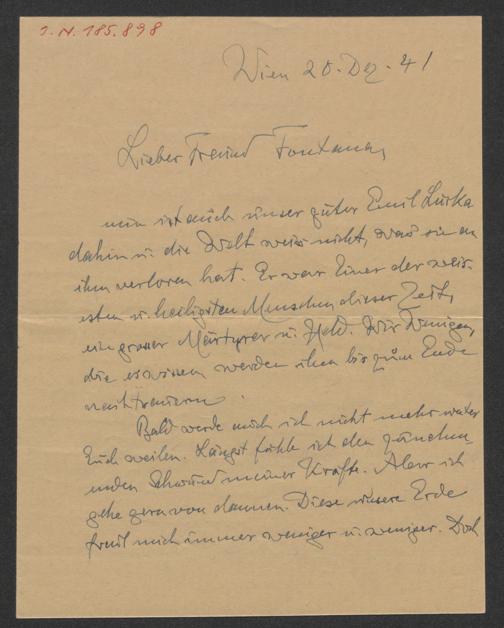 I.N. 185.898
Wien 20. Dez. 41
Lieber Freund Fontana,
nun ist auch unser guter Emil Lucka
dahin u. die Welt weiss nicht, was sie an
ihm verloren hat. Er war Einer der weis-
esten u. heiligsten Menschen dieser Zeit,
ein grosser Märtyrer u. Held. Wir Wenigen,
die es wissen werden ihm bis zum Ende
nachtrauern.
Bald werde auch ich nicht mehr unter
Euch weilen. Längst fühle ich den zunehm
enden Schwund meiner Kräfte. Aber ich
gehe gern von dannen. Diese unsere Erde
freut mich immer weniger u. weniger. Doch